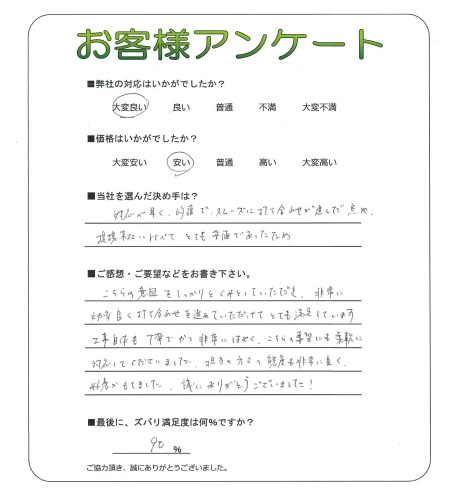 お客様アンケート
■弊社の対応はいかがでしたか？
大変良い 良い 普通 不満 大変不満
■価格はいかがでしたか？
大変安い 安い 普通 高い 大変高い
■当社を選んだ決め手は？
対応が早く、的確で、スムーズに打ち合わせが進んだ点や、
提携 に比べて とても安価であったため
■ご感想・ご要望などをお書き下さい。
こちらの意図をしっかりとくみとっていただき、非常に
効率良く打ち合わせを進めていただけて とても満足しています
工事自体も 丁寧でかつ非常にはやく、こちらの要望にも柔軟に
対応してくださいました。担当の方々の態度も非常に良く、
好感がもてました。誠にありがとうございました！
■最後に、ズバリ満足度は何%ですか？
90 %
ご協力頂き、誠にありがとうございました。